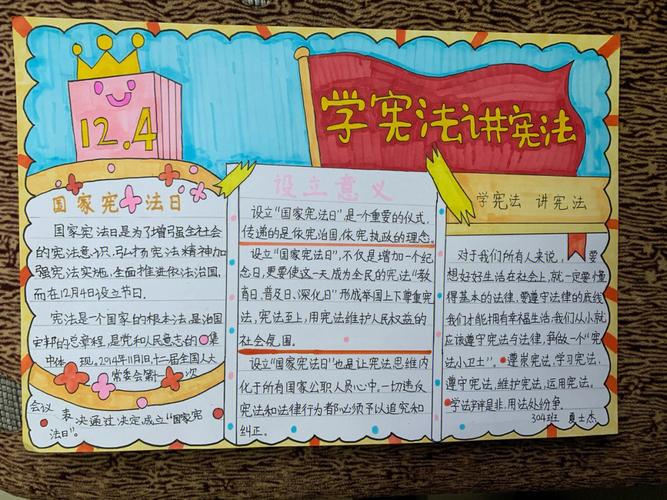 12.4
学宪法讲宪法
国家宪法日
国家宪法日是为了增强全社会
的宪法意识,弘扬宪法精神加
强宪法实施,全面推进依法治国,
而在12月4日设立节日.
宪法是一个国家的根本法,是治国
安邦的总章程,是党和人民意志的集
中体现,2014年11月1日,十二届全国人大
常委会第十次
会议表决通过决定成立“国家宪
法日”。
设立意义
设立“国家宪法日”,是一个重要的仪式,
传递的是依宪治国,依宪执政的理念。
设立“国家宪法日”,不仅是增加一个纪
念日,更要使这一天成为全民的宪法“教
育日、普及日、深化日”形成举国上下尊重宪
法,宪法至上,用宪法维护人民权益的
社会氛围。
设立“国家宪法日”也是让宪法思维内
化于所有国家公职人员心中,一切违反
宪法和法律行为都必须予以追究和
纠正。
学宪法 讲宪法
对于我们所有人来说,要
想好好生活在社会上,就一定要懂
得基本的法律,要遵守法律的底线
我们才能拥有幸福生活,我们从小就
应该遵守宪法与法律,争做一个“宪
法小卫士”。遵崇宪法,学习宪法,
遵守宪法,维护宪法,运用宪法。
学法辩是非,用法处纷争。
304班 夏士杰